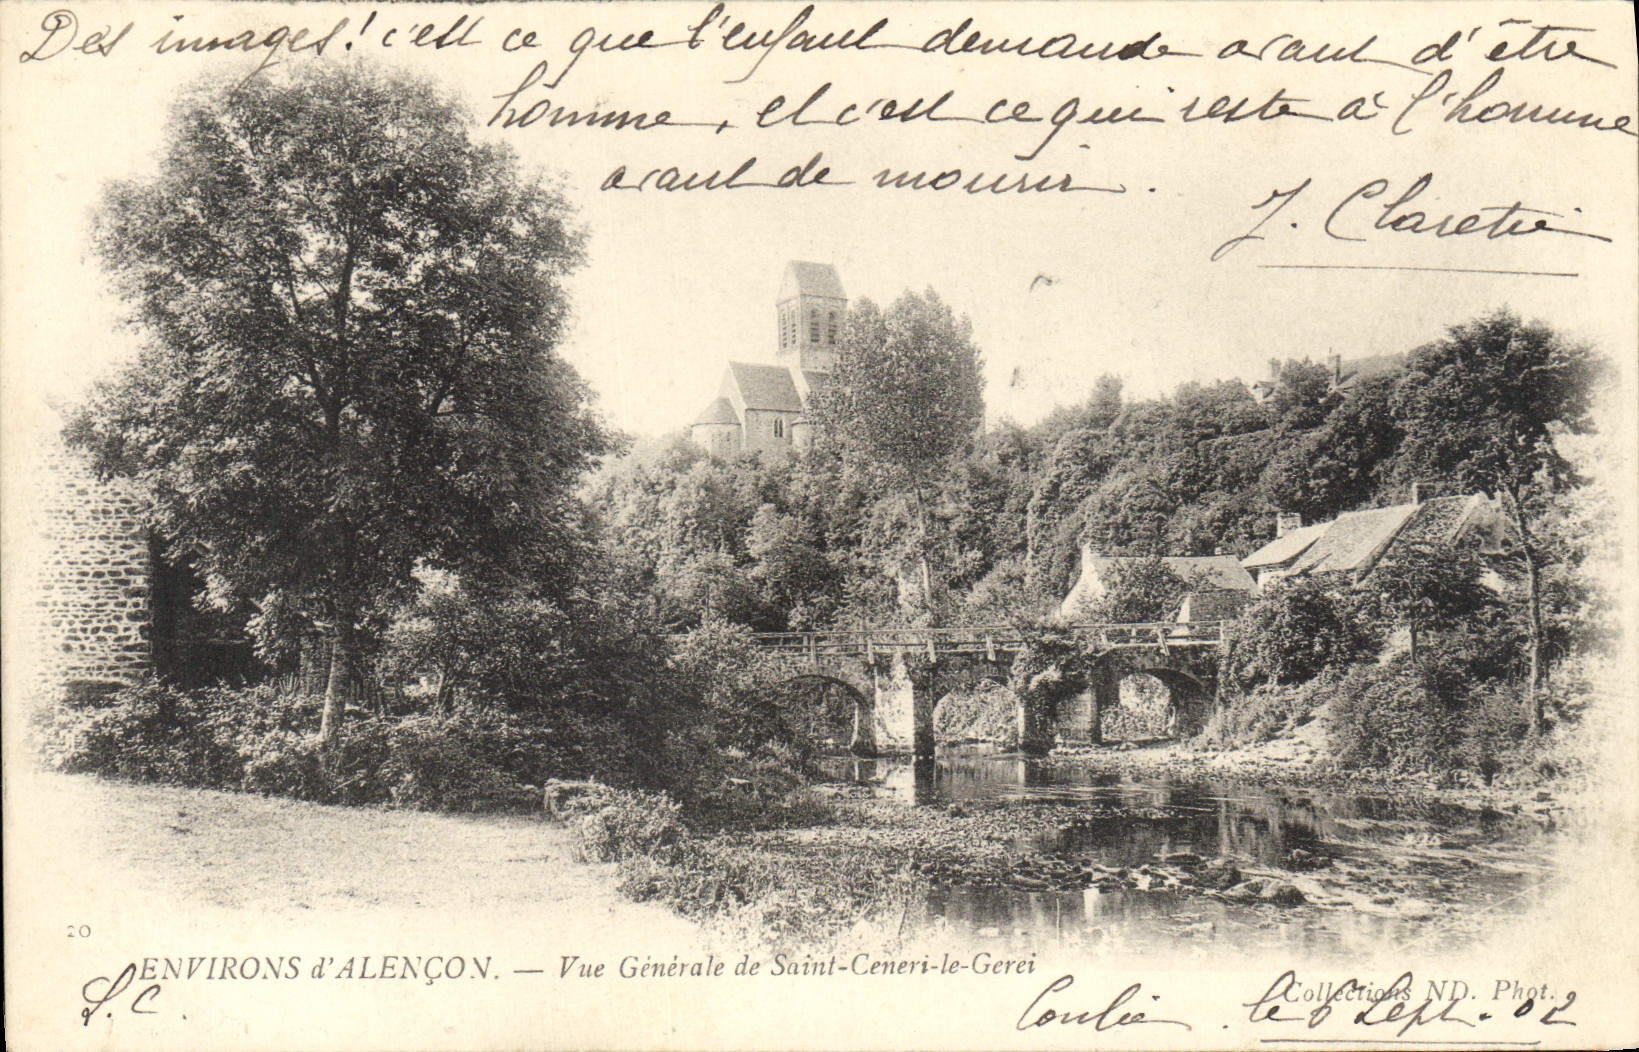 Des images! c'est ce que l'enfant demande avant d'être
homme, et c'est ce qui reste à l'homme
avant de mourir.
J. Claretie
20
ENVIRONS d'ALENÇON. — Vue Générale de Saint-Ceneri-le-Gerei
Collections ND. Phot.
L. C.
Conlie le 6 Sept. 02